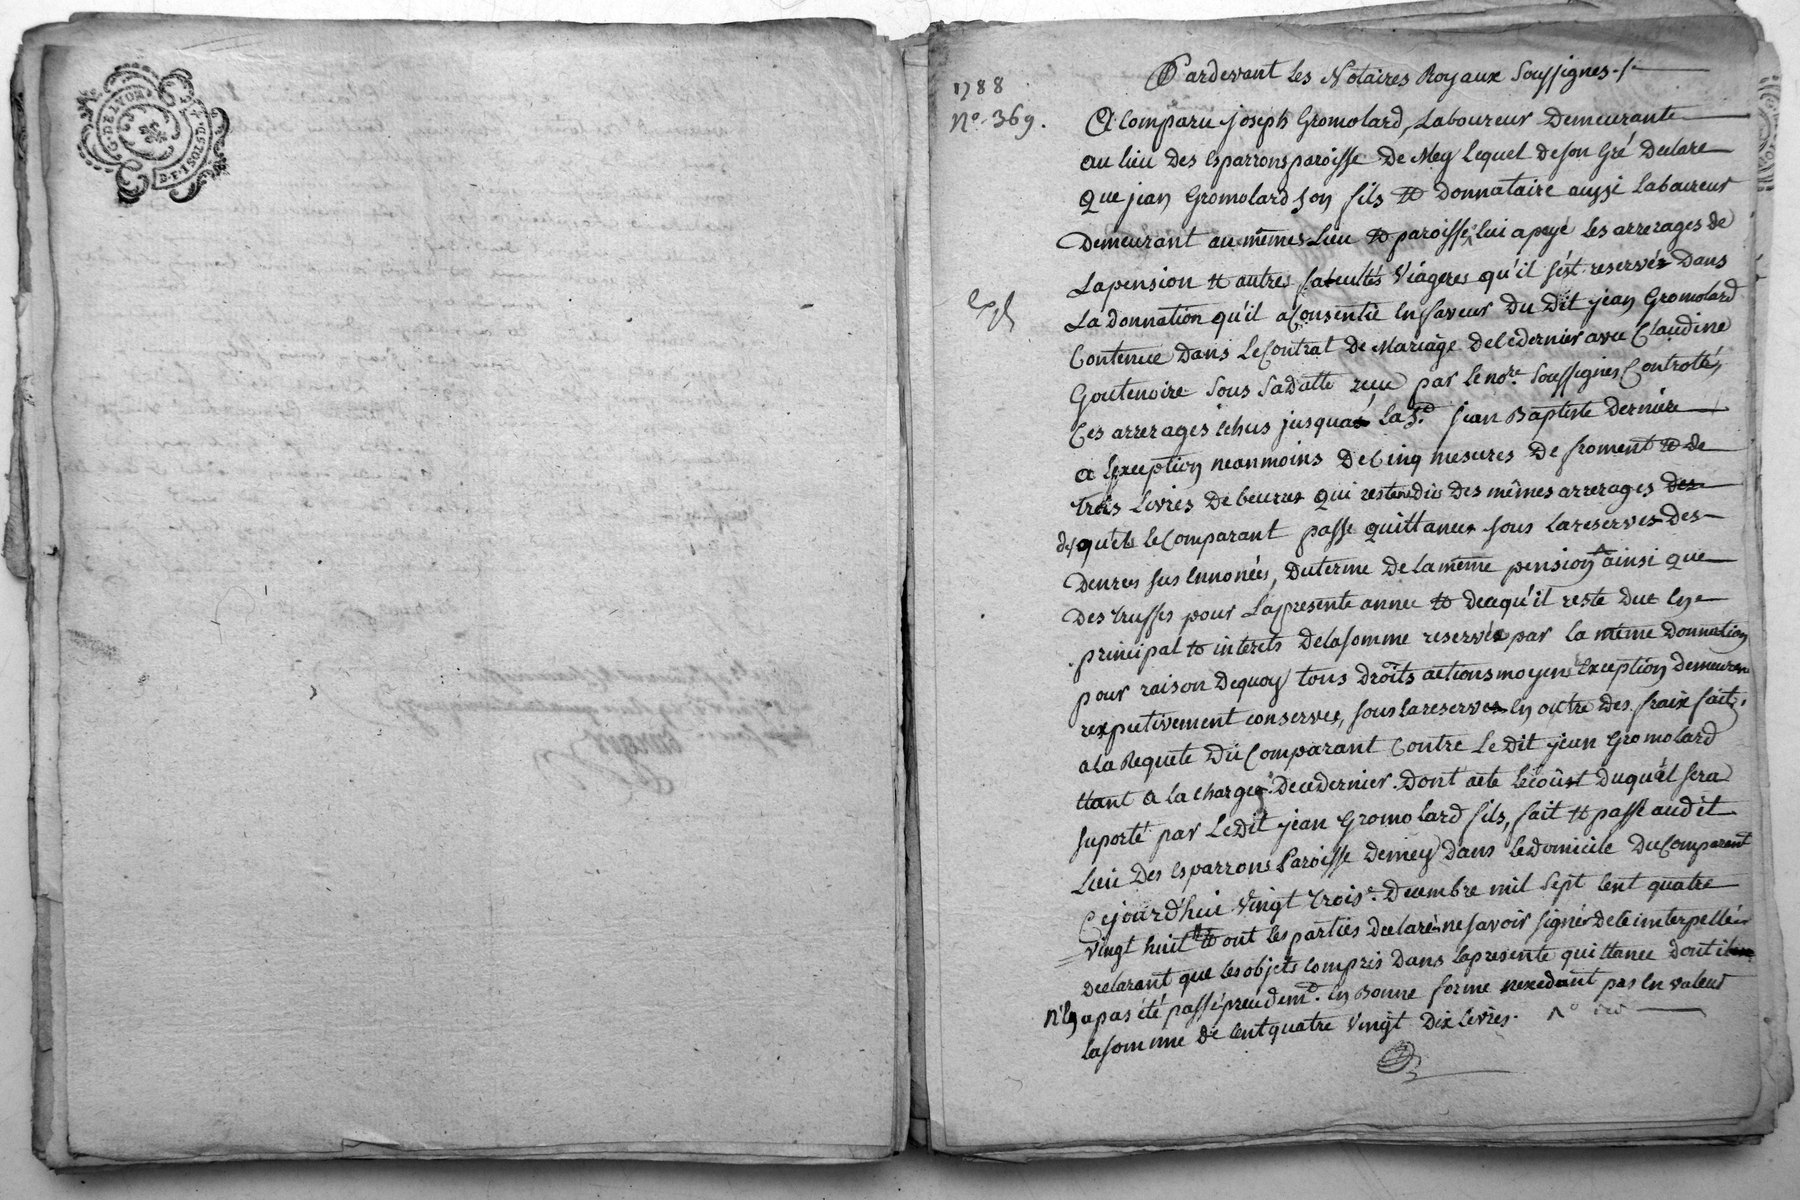 G. DE LYON
2. SOLS
D. F. 1
1788
N.º 369.
Pardevant les Notaires Royaux soussignes./.
A Comparu joseph Gromolard, Laboureur Demeurante
au lieu des esparrons paroisse De Mey lequel De son Gré Declare
Que jean Gromolard son fils et Donnataire aussi laboureur
Demeurant au mêmes Lieu et paroisse, lui a payé les arrerages de
La pension et autres facultés viageres qu'il s'est reservés Dans
La donnation qu'il a Consentie en faveur Du Dit jean Gromolard
Contenue Dans le Contrat de Mariage De ce dernier avec Claudine
Goutenoire sous sa datte reçu par le no.re soussignés Controllé,
Ces arrerages echus jusqua la S.t jean Baptiste Derniere
a l'exception neanmoins De Cinq mesures De froment et de
trois livres De beurre qui restent dûs Des mêmes arrerages des
desquels le Comparant passe quittance sous la reserve Des
Denrees sus ennonées, Du terme De la même pension ainsi que
Des truffes pour La presente annee et De ce qu'il reste Due en
principal et interets De la somme reservée par la même Donnation
pour raison De quoy tous Droits actions moyens exception Demeurent
respectivement conservés, sous la reserve en outre Des fraix faits
a la Requete Du Comparant Contre Le Dit jean Gromolard
etant a la charge De ce Dernier. Dont acte le coûst Duquel sera
suporté par Le Dit jean Gromolard fils, fait et passé au dit
Lieu Des esparrons Paroisse De mey Dans le Domicile Du Comparent
Cejourd'hui vingt trois Decembre mil sept cent quatre
vingt huit et ont les parties Declaré ne savoir signer De ce interpellé
Declarant que les objets compris Dans la presente quittance dont il
n'en a pas été passé precedem.t en Bonne forme nexedant pas en valeur
la somme de cent quatre vingt Dix livres.